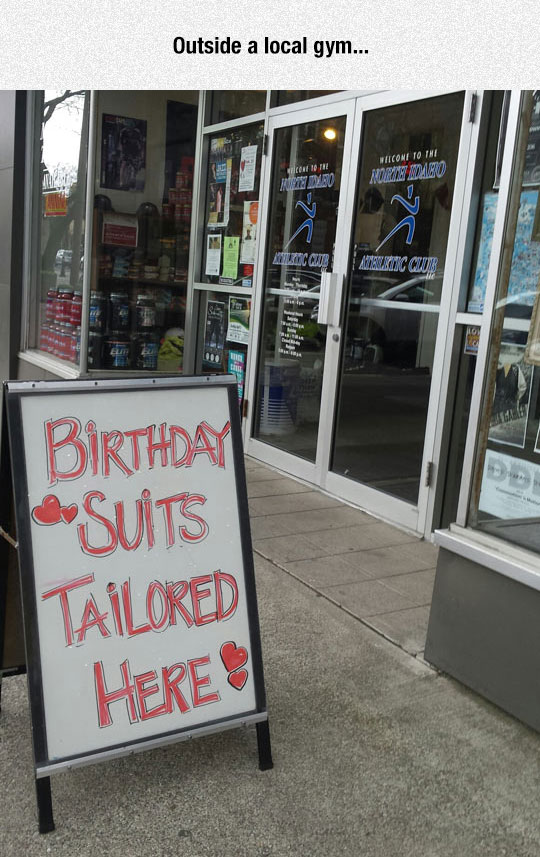 Outside a local gym...
WELCOME TO THE
NORTH IDAHO
ATHLETIC CLUB
WELCOME TO THE
NORTH IDAHO
ATHLETIC CLUB
LLC
BIRTHDAY
SUITS
TAILORED
HERE